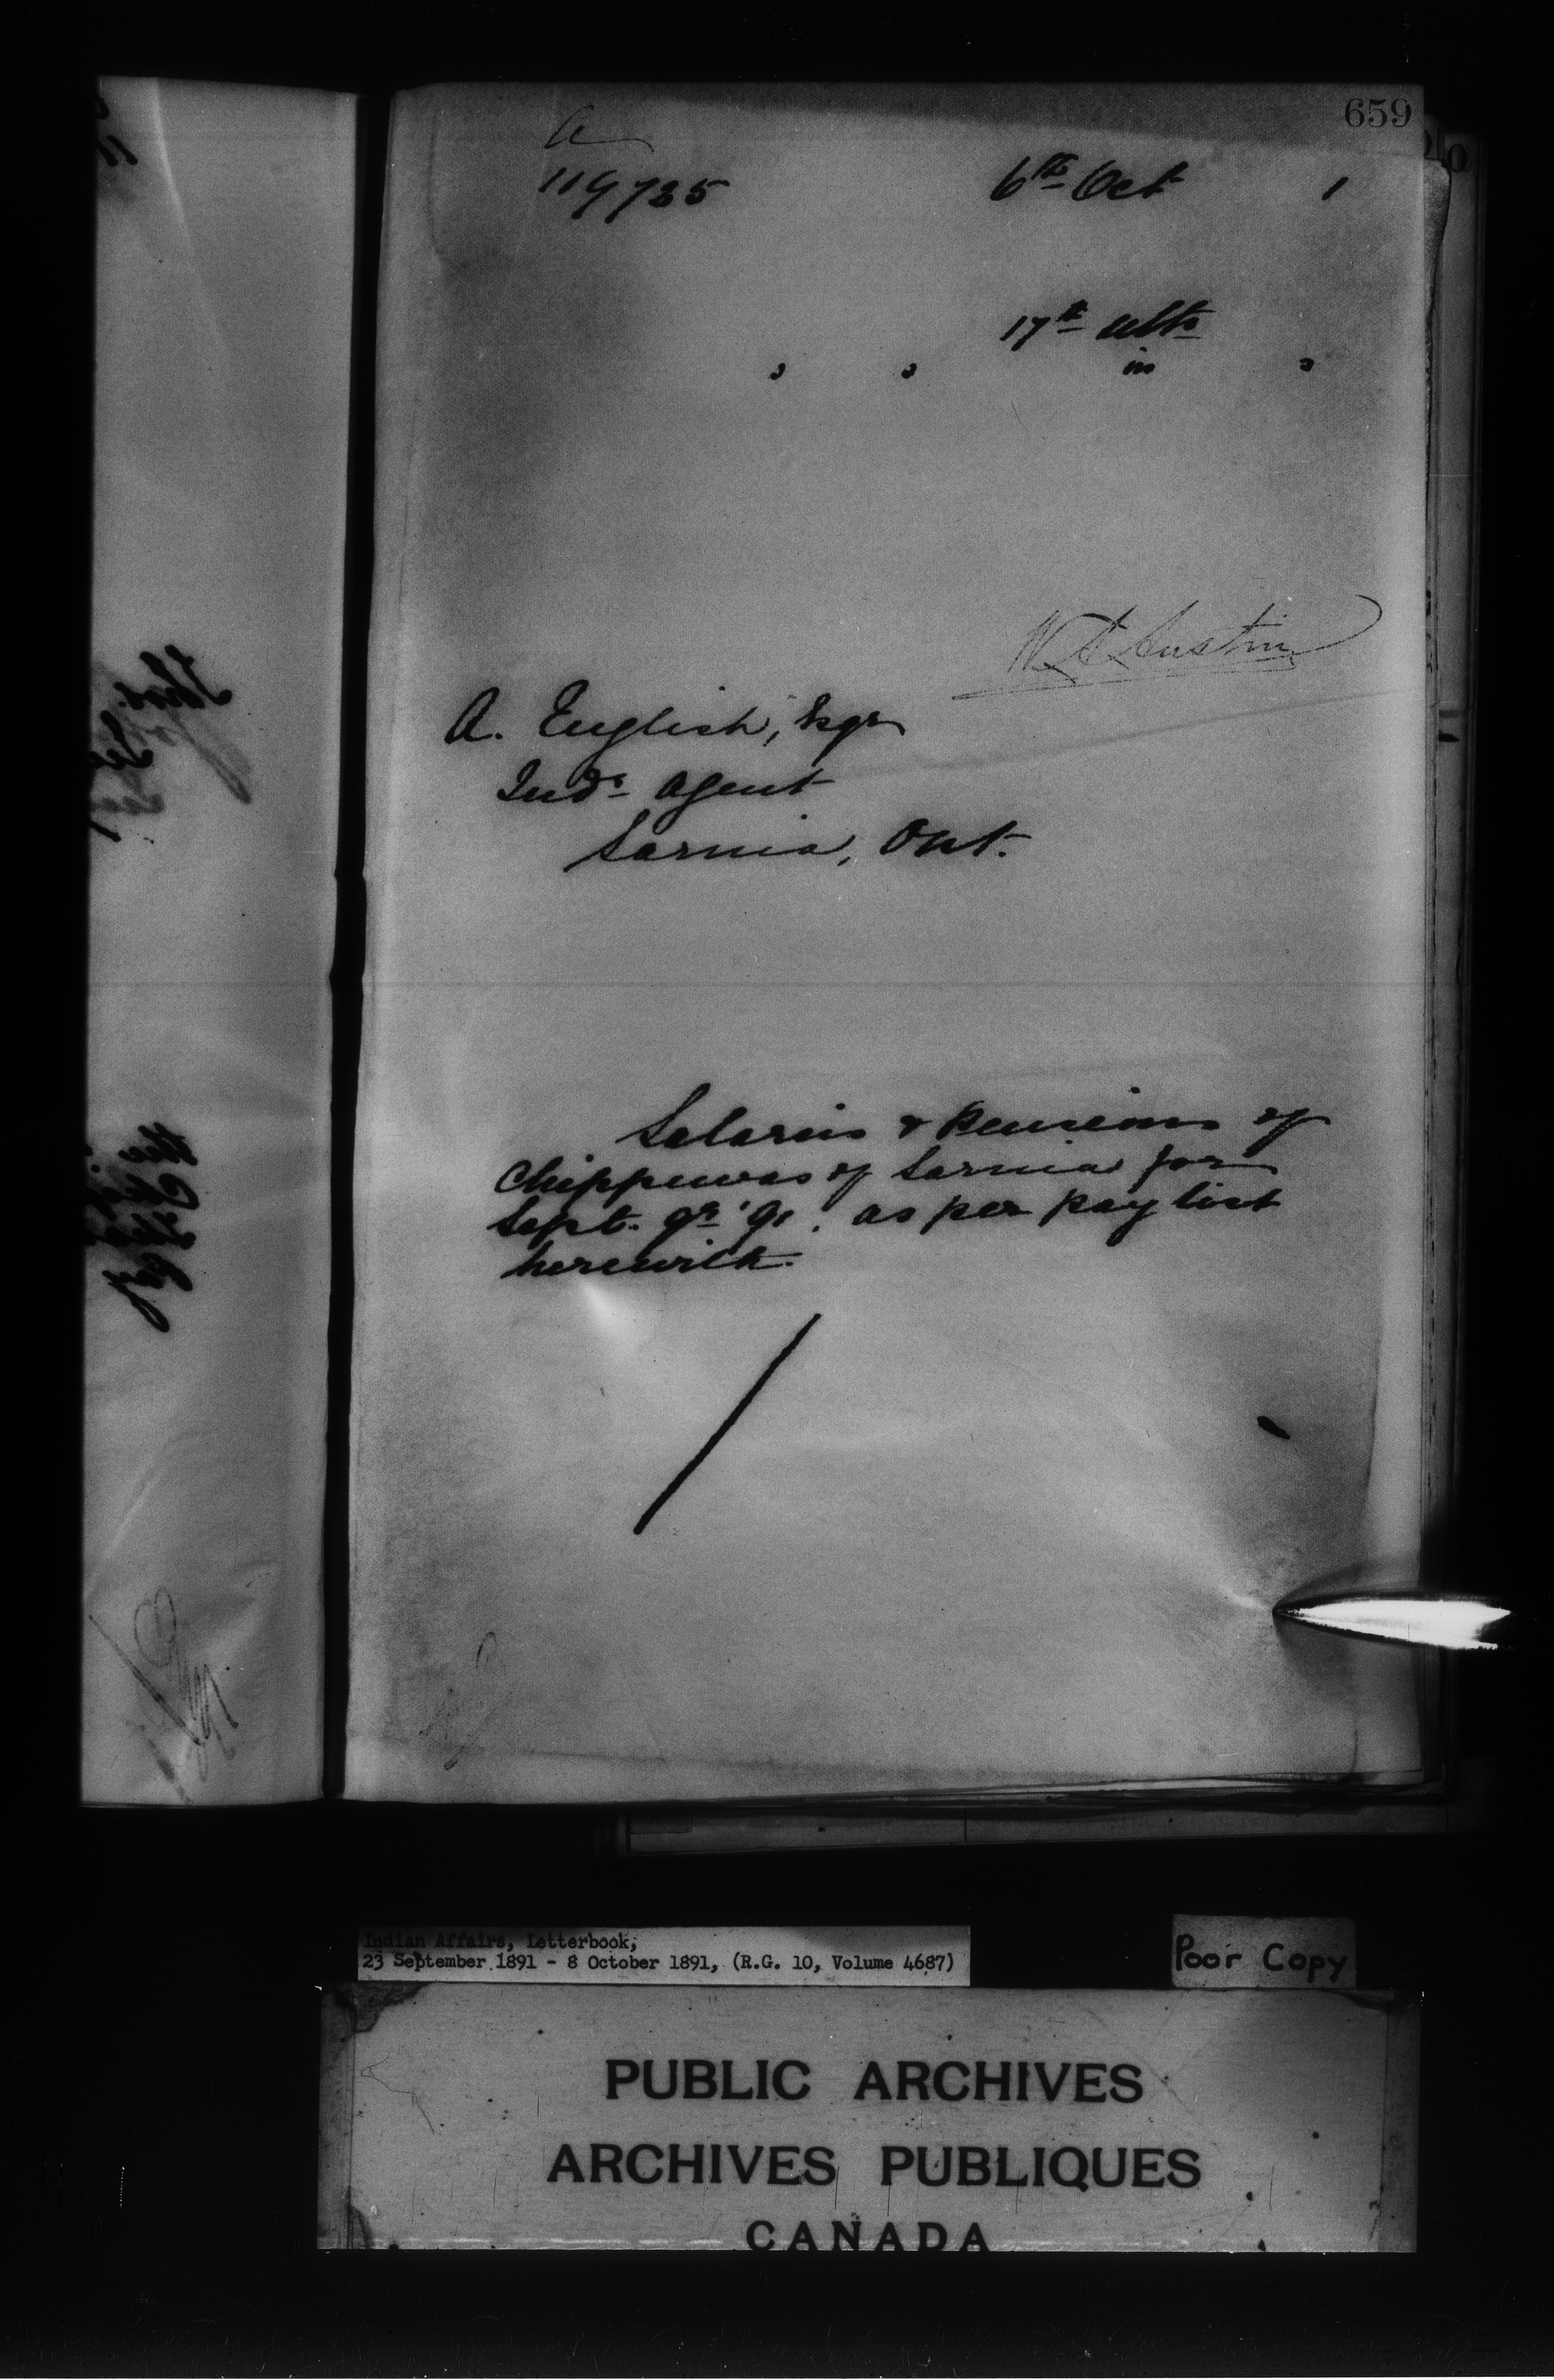 659
A
119735 6th Oct 1
17th ulto
, , in ,
W A Austin
A. English, Esqr
Indn Agent
Sarnia, Ont.
Salaries & Pensions of
Chippewas of Sarnia for
Sept. qr '91. as per pay list
herewith.
Indian Affairs, Letterbook,
23 September 1891 - 8 October 1891, (R.G. 10, Volume 4687)
Poor Copy
PUBLIC ARCHIVES
ARCHIVES PUBLIQUES
CANADA